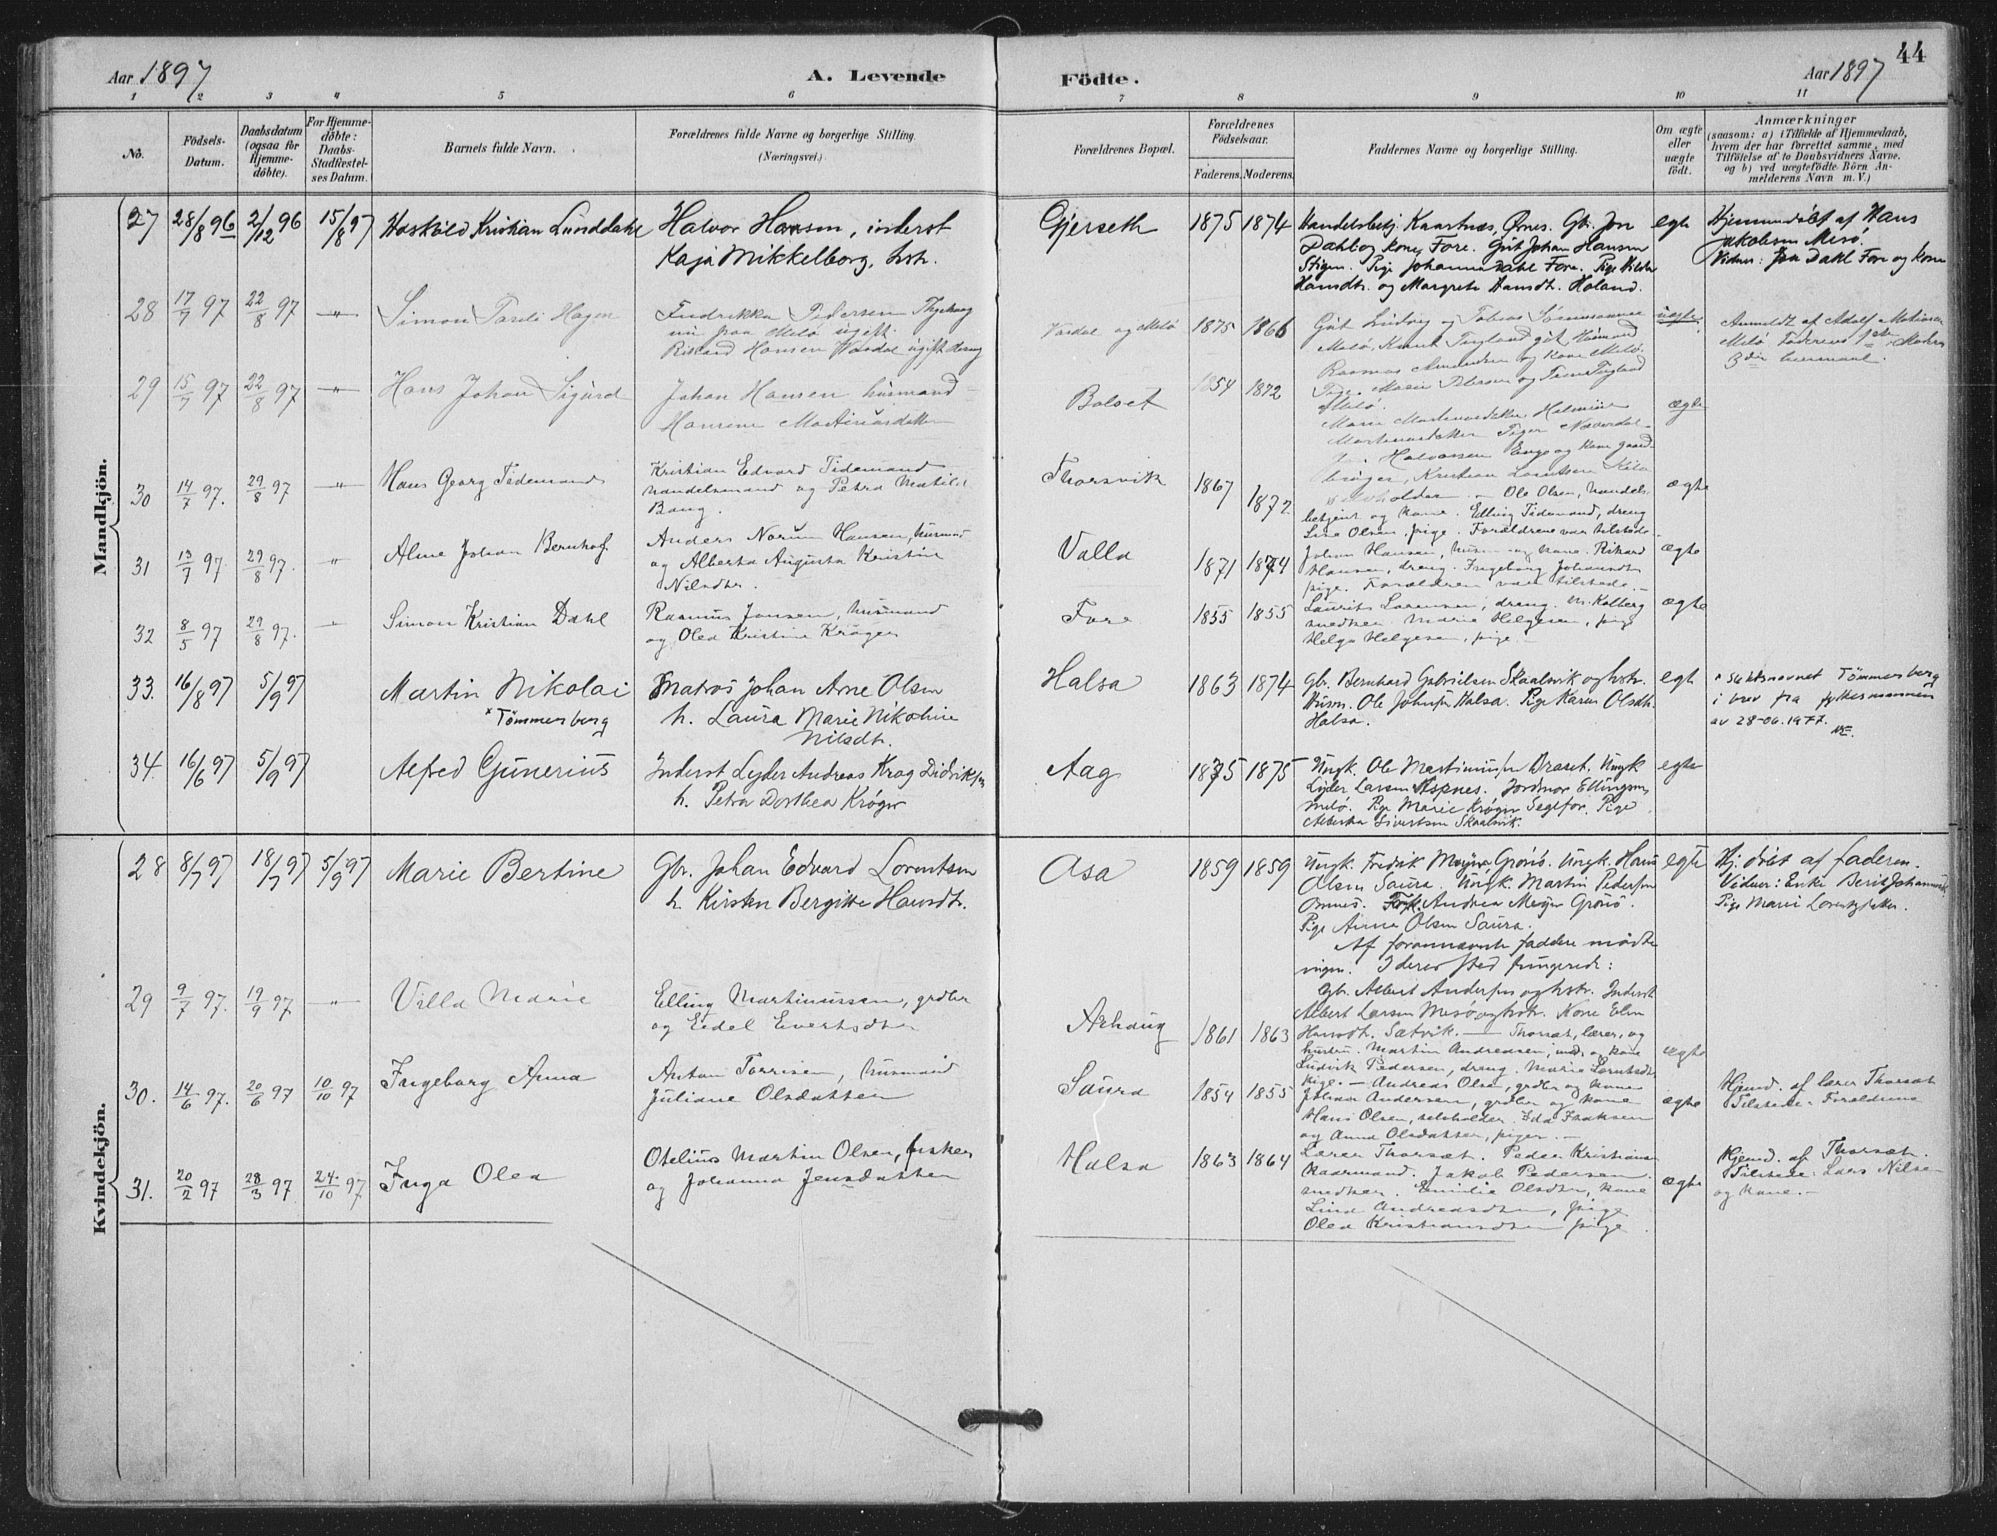 44
Aar 1897
A. Levende
Födte.
Aar 1897
1 2 3 4 5 6 7 8 9 10 11
No.
Födsels-
Datum.
Daabsdatum
(ogsaa for
Hjemme-
döbte).
For Hjemme-
döbte:
Daabs-
Stadfæstel-
ses Datum.
Barnets fulde Navn.
Forældrenes fulde Navne og borgerlige Stilling.
(Næringsvei.)
Forældrenes Bopæl.
Forældrenes
Födselsaar.
Faderens. Moderens.
Faddernes Navne og borgerlige Stilling.
Om ægte
eller
uægte
födt.
Anmærkninger
(saasom: a) i Tilfælde af Hjemmedaab,
hvem der har forrettet samme, med
Tilföielse af to Daabsvidners Navne,
og b) ved uægtefödte Börn An-
melderens Navn m. V.)
Mandkjön.
27 28/8 96 2/12 96 15/8 97 Haskold Kristian Lunddahl
Halvor Hansen, inderst
Kaja Mikkelborg, hstr.
Gjerseth 1875 1874
Handelsbetj. Kaartnæs, Ørnes. Gb. Jon
Dahl og kone, Fore. Gut Johan Hansen
Stigen. Pige Johanna Dahl Fore. Pige
Hansdt. og Margrete Hansdt. Holand.
egte
Hjemmedøbt af Hans
Jakobsen Mesø.
Vidner: Dahl Fore og kone
28 17/7 97 22/8 97 -"- Simon Hagen
Fredrikke Pedersen
paa Melø ugift.
Rikard Hansen Værdal ugift dreng
Værdal og Melø 1875 1866
Gut Ludvig og Tobias
Melø,
Rasmus Amundsen og kone Melø.
Pige Marie Petersen og
Melø.
uægte
Anmeldt af Adolf
Melø Faderens 1ste, Moders
3die leiermaal.
29 15/7 97 22/8 97 -"- Hans Johan Sigurd
Johan Hansen husmand
Hansine Martinusdatter
Bolset 1854 1872
Marie Martinusdatter,
Martinusdatter Piger
Halvorsen Enge og kone
Kristian Lorntsen
selvholder
ægte
30 14/7 97. 29/8 97 -"- Hans Georg Tidemand
Kristian Edvard Tidemand
handelsmand og Petra
Bang.
Thorsvik 1867 1872
Ole Olsen, handels-
betjent og kone. Elling Tidemand, dreng
Lise Olsen, pige. Forældrene var tilstede.
ægte
31 13/7 97 29/8 97. -"- Alme Johan Bernhof
Anders Norum Hansen, husmd
og Alberta Augusta Kristin
Nilsdtr.
Valla 1871 1874
Johan Hansen, husm. og kone. Rikard
Hansen, dreng. Ingeborg Johansdtr
pige. Forældrene var tilstede.
ægte
32 8/5 97 29/8 97. Simon Kristian Dahl
Rasmus Jonsen, husmand
og Olea Kristine Krøger
Fore 1855 1855
Laurits Lorensen, dreng. M. Kolberg
snedker Marie Helgesen, pige
Helga Helgesen, pige.
ægte
33. 16/8 97 5/9 97 Martin Nikolai
x Tömmerberg
Matros Johan Arne Olsen
h. Laura Marie Nikoline
Nilsdtr.
Halsa 1863 1874
Gb. Bernhard Gabrielsen Skaalsvik og hstr.
Husm. Ole Johnsen Halsa. Pige Karen Olsdtr.
Halsa.
egte
x Slektsnavnet Tömmerberg
i brev fra fylkesmannen
av 28-06.1977.
34 16/6 97 5/9 97 Alfred Gunerius
Inderst Lyder Andreas Krag Didriksen
h. Petra Dorthea Krøger
Aag 1875 1875
Ungk. Ole Martinussen Draset. Ungk
Lyder Larsen Aspnes. Jordmor Ellingsen
Melø. Pige Marie Krøger Segelfor. Pige
Alberta Sivertsen Skaalsvik.
egte
Kvindekjön.
28 8/7 97 18/7 97 5/9 97 Marie Bertine
Gbr. Johan Edvard Lorentsen
h. Kirsten Bergitte Hansdtr.
Asa 1859 1859
Ungk. Fredrik Meyer Grønø. Ungk. Hans
Olsen Saura. Ungk. Martin Pedersen
Ornes. Andrea Meyer Grønø.
Pige Anna Olsen Saura.
Af forannævnte faddere mødte
ingen. I deres sted fungerede:
Gbr. Albert Andersen og hstr. Inderst
Albert Larsen Mesø og hstr. Kone Elen
Hansdtr. Sætvik.
egte
Hj. døbt af faderen.
Vidner: Enke Berit Johannsd.
Pige Marie Lorentzdatter.
29 9/7 97. 19/9 97 -"- Villa Marie
Elling Martinussen, grdbr
og Eidel Evertsdtr
Arhaug 1861 1863
Thorsæt, lærer, og
hustru. Martin Andreasen, ind. og kone
Ludvik Pedersen, dreng. Marie Lorntsdtr
pige.
ægte
30. 14/6 97. 20/6 97 10/10 97 Ingeborg Anna
Anton Torrisen, husmand
Juliane Olsdatter
Saura 1854 1855
Andreas Olsen, grdbr og kone
Johan Andersen, grdbr og kone
Hans Olsen, selvholder. Ida Isaksen
og Anna Olsdatter, piger.
ægte
Hjemd. af lærer Thorsæt
Tilstede: Forældrene
31. 20/2 97 28/3 97 24/10 97 Inga Olea
Otelius Martin Olsen, fisker
og Johanna Jensdatter
Halsa 1863 1864
Lærer Thorsæt. Peder Kristiansen
Jakob Pedersen
snedker. Emilie Olsdtr, kone
Lina Andreasdtr, pige
Olea Kristiansdtr pige
ægte
Hjemd. af Thorsæt.
Tilstede: Lars Nilsen
og kone.